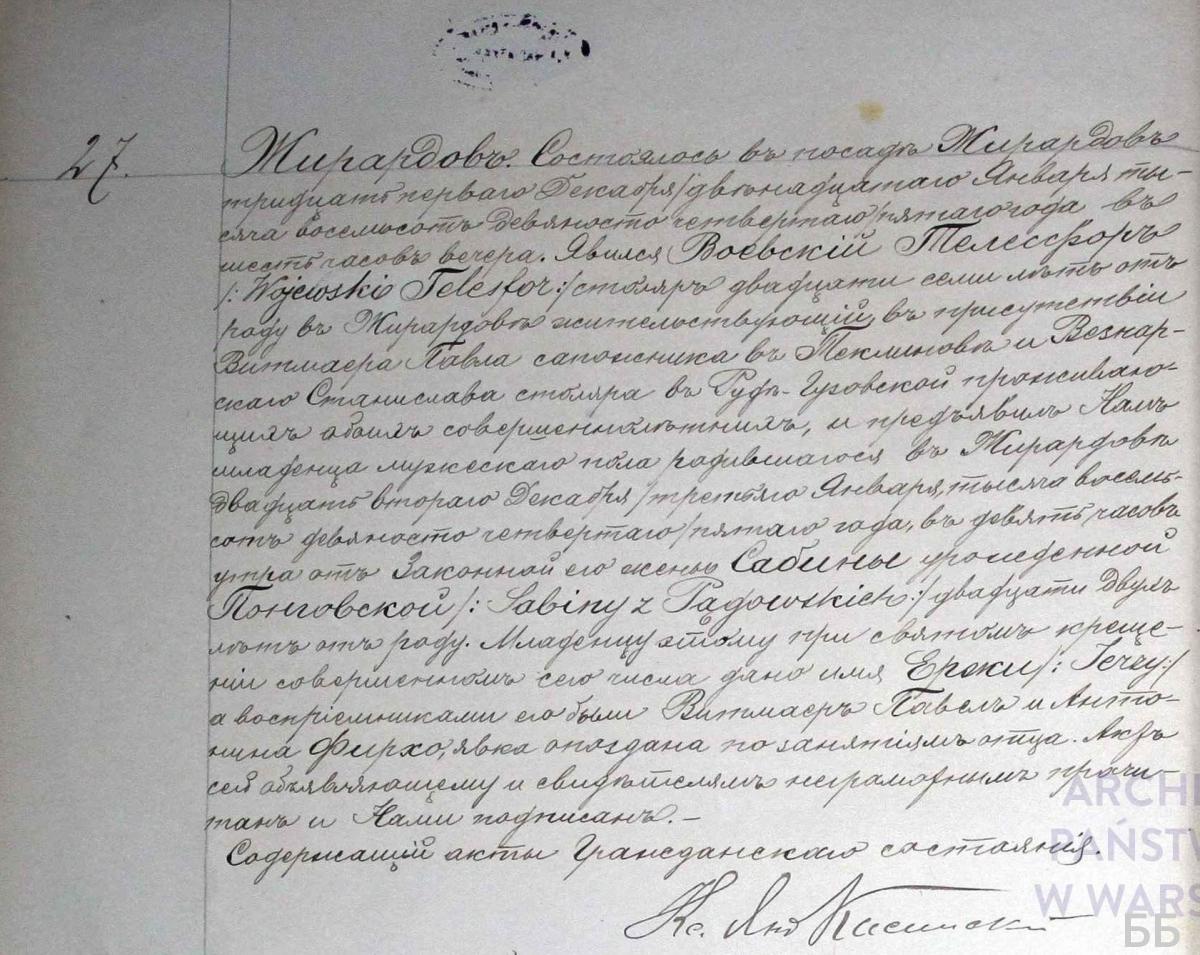 27.
Жирардовъ. Состоялось въ посадѣ Жирардовъ
тридцать перваго Декабря /двѣнадцатаго Января ты-
сяча восемьсотъ девяносто четвертаго /пятаго года въ
шесть часовъ вечера. Явился Воевскій Телесфоръ
/: Wojewski Telesfor :/ столяръ двадцати семи лѣтъ отъ
роду въ Жирардовѣ жительствующій, въ присутствіи
Витмаера Павла сапожника въ Теклиновѣ и Везнар-
скаго Станислава столяра въ Рудѣ-Гузовской проживаю-
щихъ обоихъ совершеннолѣтнихъ, и предъявилъ Намъ
младенца мужескаго пола родившагося въ Жирардовѣ
двадцать втораго Декабря /третьяго Января, тысяча восемь-
сотъ девяносто четвертаго /пятаго года, въ девять часовъ
утра отъ законной его жены Сабины урожденной
Понговской /: Sabiny z Pągowskich :/ двадцати двухъ
лѣтъ отъ роду. Младенцу этому при святомъ креще-
ніи совершенномъ сего числа дано имя Ержи /: Jerzy :/
а воспріемниками его были Витмаеръ Павелъ и Анто-
нина Фирхо, явка опоздана по занятіямъ отца. Актъ
сей объявляющему и свидѣтелямъ неграмотнымъ прочи-
танъ и Нами подписанъ. –
Содержащій акты Гражданскаго состоянія.
Кс. Янъ
ARCHI
PAŃSTW
W WARS
ББ